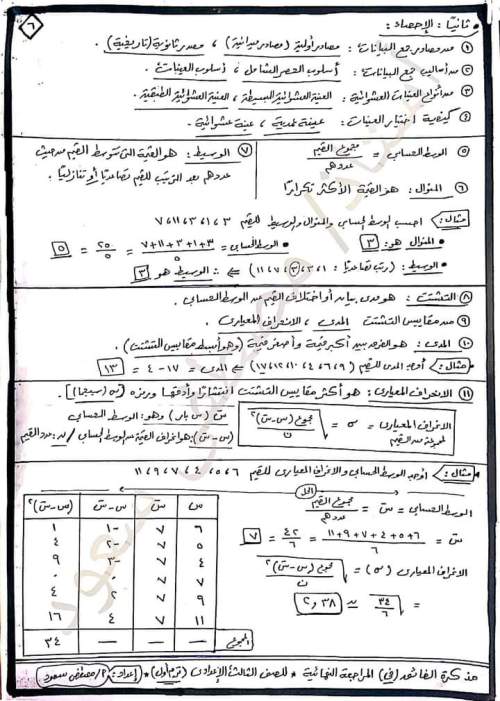 ٦
ثانيًا : الإحصاء :
① من مصادر جمع البيانات : مصادر أولية (مصادر ميدانية) ، مصدر ثانوية (تاريخية) .
② من أساليب جمع البيانات : أسلوب الحصر الشامل ، أسلوب العينات .
③ من أنواع العينات العشوائية : العينة العشوائية البسيطة ، العينة العشوائية الطبقية .
④ كيفية اختيار العينات : عينة عمدية ، عينة عشوائية .
⑤ الوسط الحسابى = مجموع القيم / عددهم
⑥ المنوال : هو القيمة الأكثر تكرارًا
⑦ الوسيط : هو القيمة التى تتوسط القيم من حيث
عددهم بعد الترتيب للقيم تصاعديًا أو تنازليًا .
مثال : احسب الوسط الحسابى والمنوال والوسيط للقيم ٣ ، ١ ، ٣ ، ١١ ، ٧
• المنوال هو : ٣
• الوسط الحسابى = ١+٣+٣+١١+٧ / ٥ = ٢٥ / ٥ = ٥
• الوسيط : (رتب تصاعديًا : ١ ، ٣ ، ٣ ، ٧ ، ١١) ⇐ ∴ الوسيط هو ٣
⑧ التشتت : هو مدى تباعد أو اختلاف القيم عن الوسط الحسابى .
⑨ من مقاييس التشتت المدى ، الانحراف المعيارى .
⑩ المدى : هو الفرق بين أكبر قيمة وأصغر قيمة (وهو أبسط مقاييس التشتت)
مثال : أوجد المدى للقيم (٩ ، ٦ ، ٥ ، ٤ ، ١٠ ، ١٢ ، ١٧) ⇐ المدى = ١٧ - ٤ = ١٣
⑪ الانحراف المعيارى : هو أكثر مقاييس التشتت انتشارًا وأدقها ورمزه [σ (سيجما)] .
الانحراف المعيارى = σ = √ مجـ (س-س̄)² / ن
لمجموعة من القيم
س̄ (س بار) وهو : الوسط الحسابى
(س-س̄) : هو انحراف القيمة عن الوسط الحسابى / ن : عدد القيم
مثال : أوجد الوسط الحسابى والانحراف المعيارى للقيم ٦ ، ٥ ، ٤ ، ٧ ، ٩ ، ١١
الحل
الوسط الحسابى = س̄ = مجموع القيم / عددهم
س̄ = ٦+٥+٤+٧+٩+١١ / ٦ = ٤٢ / ٦ = ٧
الانحراف المعيارى (σ) = √ مجـ (س-س̄)² / ن
= √ ٣٤ / ٦ ≃ ٢,٣٨
س س̄ س-س̄ (س-س̄)²
٦ ٧ -١ ١
٥ ٧ -٢ ٤
٤ ٧ -٣ ٩
٧ ٧ ٠ ٠
٩ ٧ ٢ ٤
١١ ٧ ٤ ١٦
المجموع — — ٣٤
مذكرة الفائد (فى) المراجعة النهائية * للصف الثالث الإعدادى (ترم أول) * إعداد : أ/ مصطفى سعود